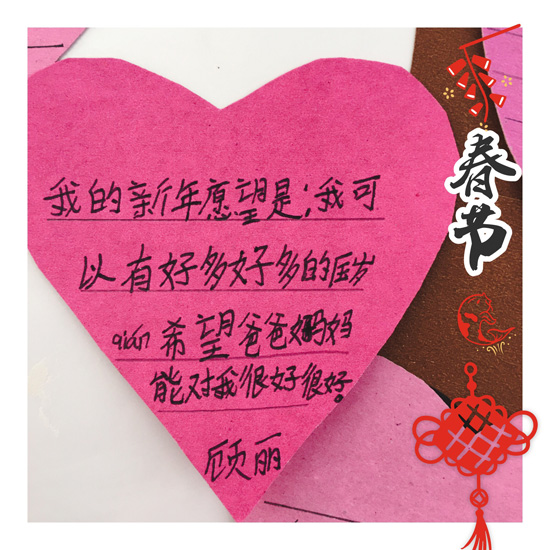 我的新年愿望是:我可
以有好多好多的压岁
qián 希望爸爸妈妈
能对我很好很好。
顾丽
春节